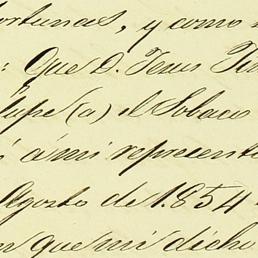 fortunas, y como
: Que D. Jesus
lupe (a) el Sobaco
á mi represent
Agosto de 1.854
n que mi dicho